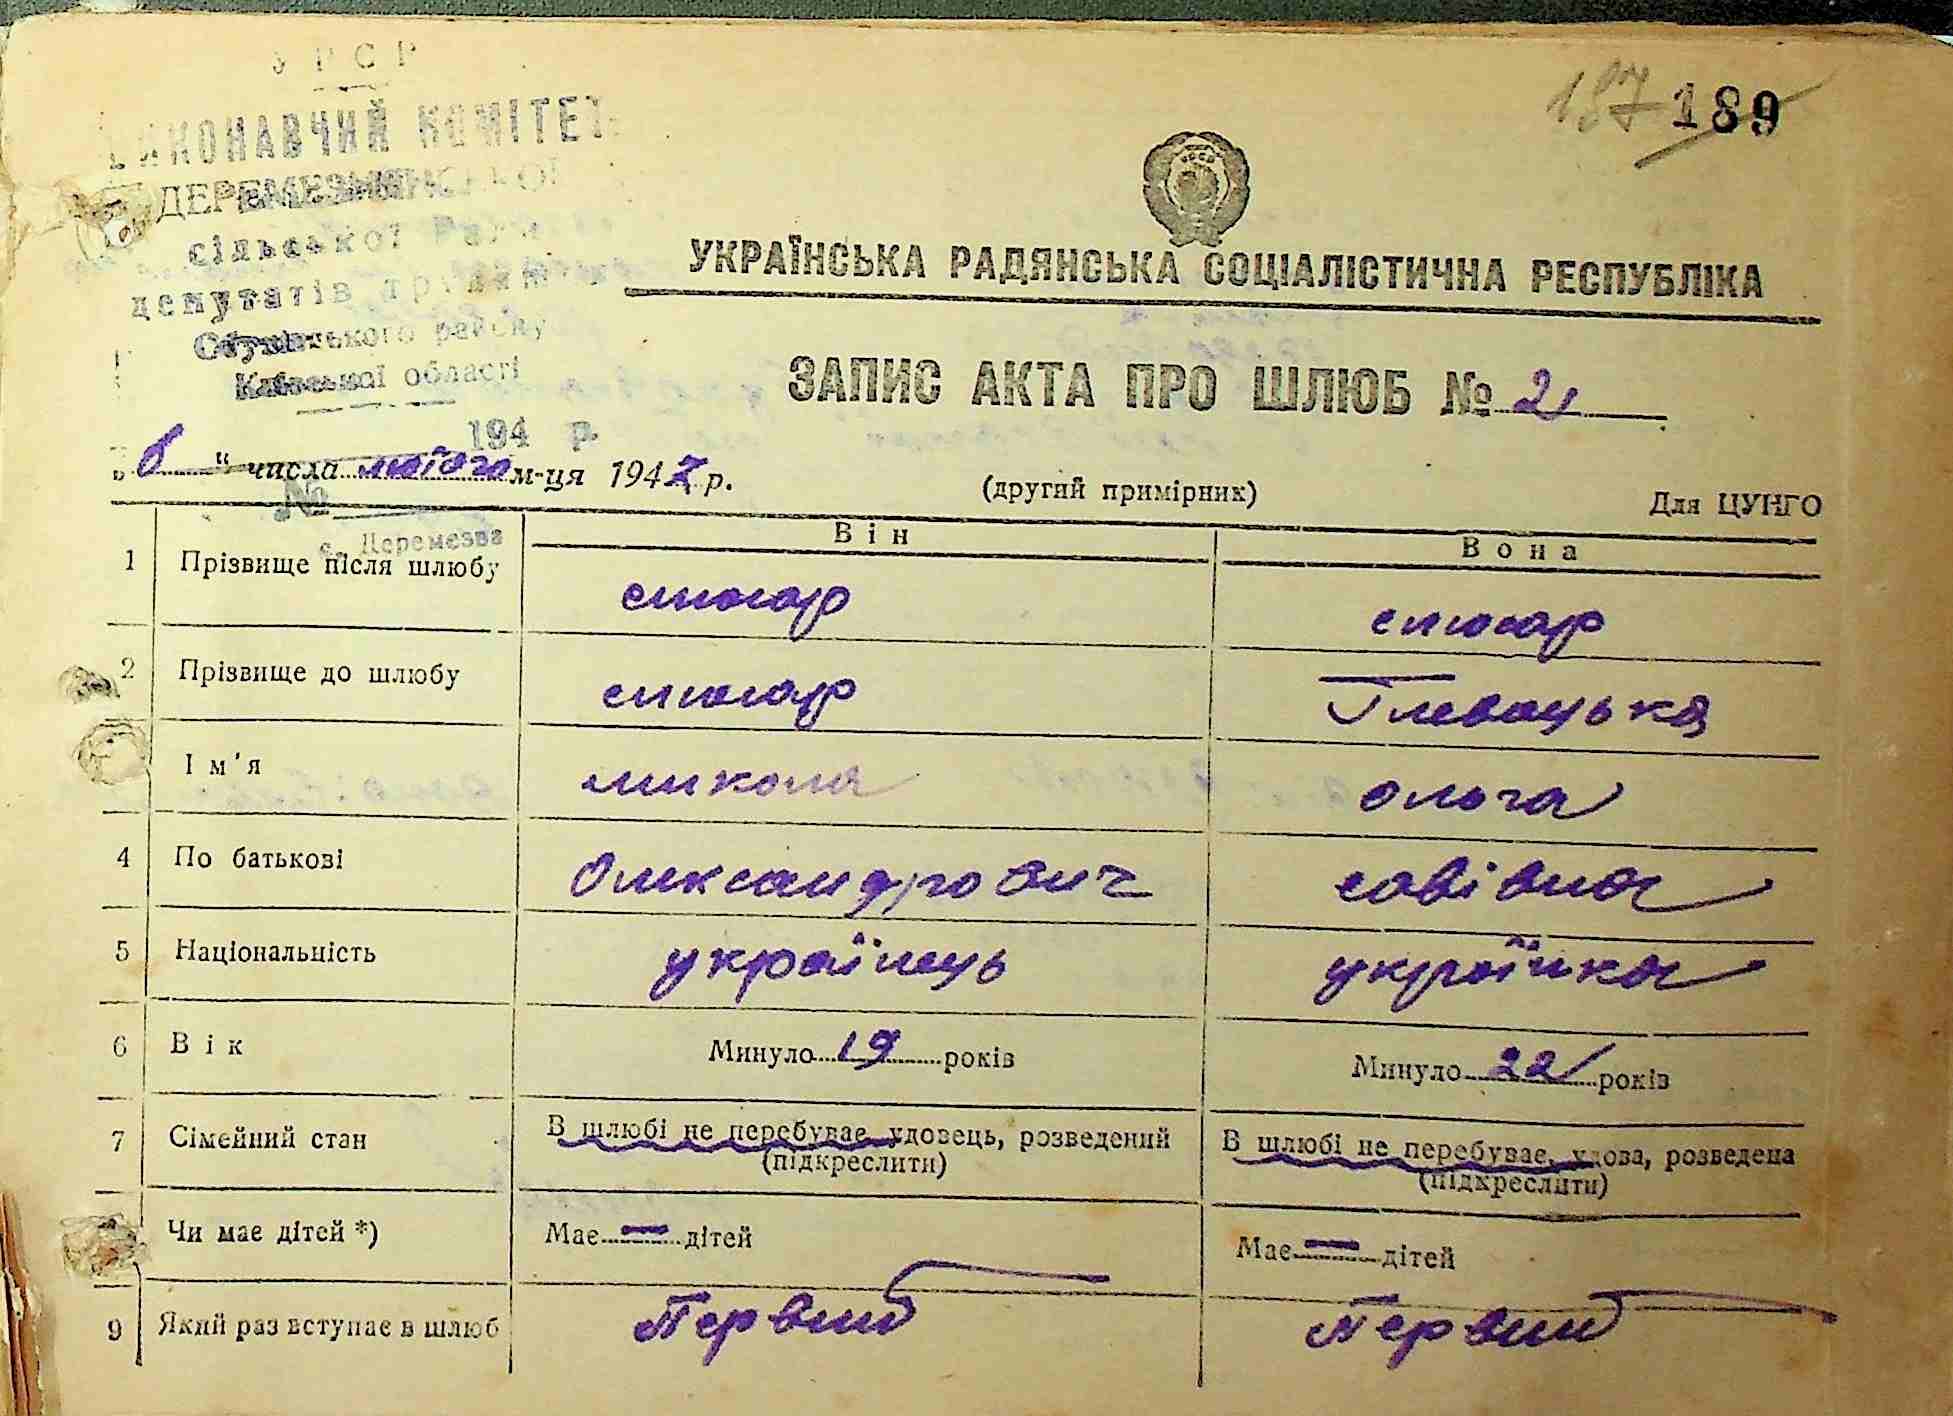 УРСР
ВИКОНАВЧИЙ КОМІТЕТ
ДЕРЕМЕЗНЯНСЬКОЇ
сільської Ради
депутатів трудящих
Обухівського району
Київської області
194 р.
№
с. Деремезна
187 189
УКРАЇНСЬКА РАДЯНСЬКА СОЦІАЛІСТИЧНА РЕСПУБЛІКА
ЗАПИС АКТА ПРО ШЛЮБ № 2
„6" числа лютого м-ця 1947 р.
(другий примірник)
Для ЦУНГО
Він Вона
1 Прізвище після шлюбу слюсар слюсар
2 Прізвище до шлюбу слюсар Глевацька
Ім'я микола ольга
4 По батькові Олександрович савівна
5 Національність українець українка
6 Вік Минуло 19 років Минуло 22 років
7 Сімейний стан В шлюбі не перебуває, удовець, розведений В шлюбі не перебуває, удова, розведена
(підкреслити) (підкреслити)
Чи має дітей *) Має — дітей Має — дітей
9 Який раз вступає в шлюб Первий Первий